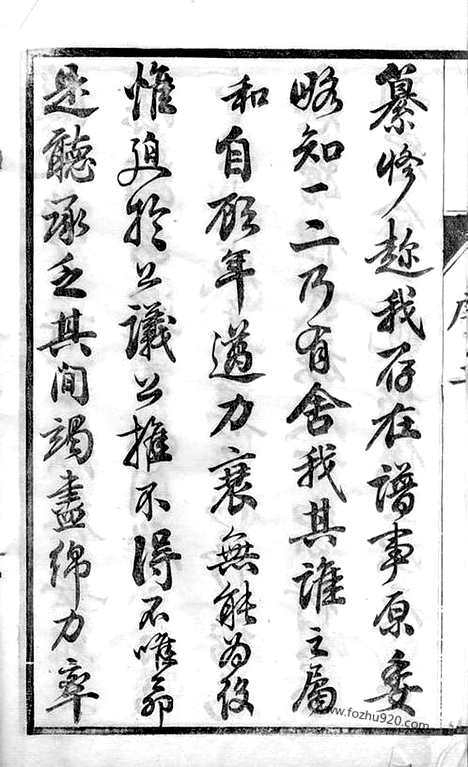 纂修趁我存在譜事原委
略知一二乃有舍我其誰之屬
和自顧年邁力衰無能為役
惟迫於公議公推不得不唯命
是聽承乏其間竭盡綿力率
www.fozhu920.com